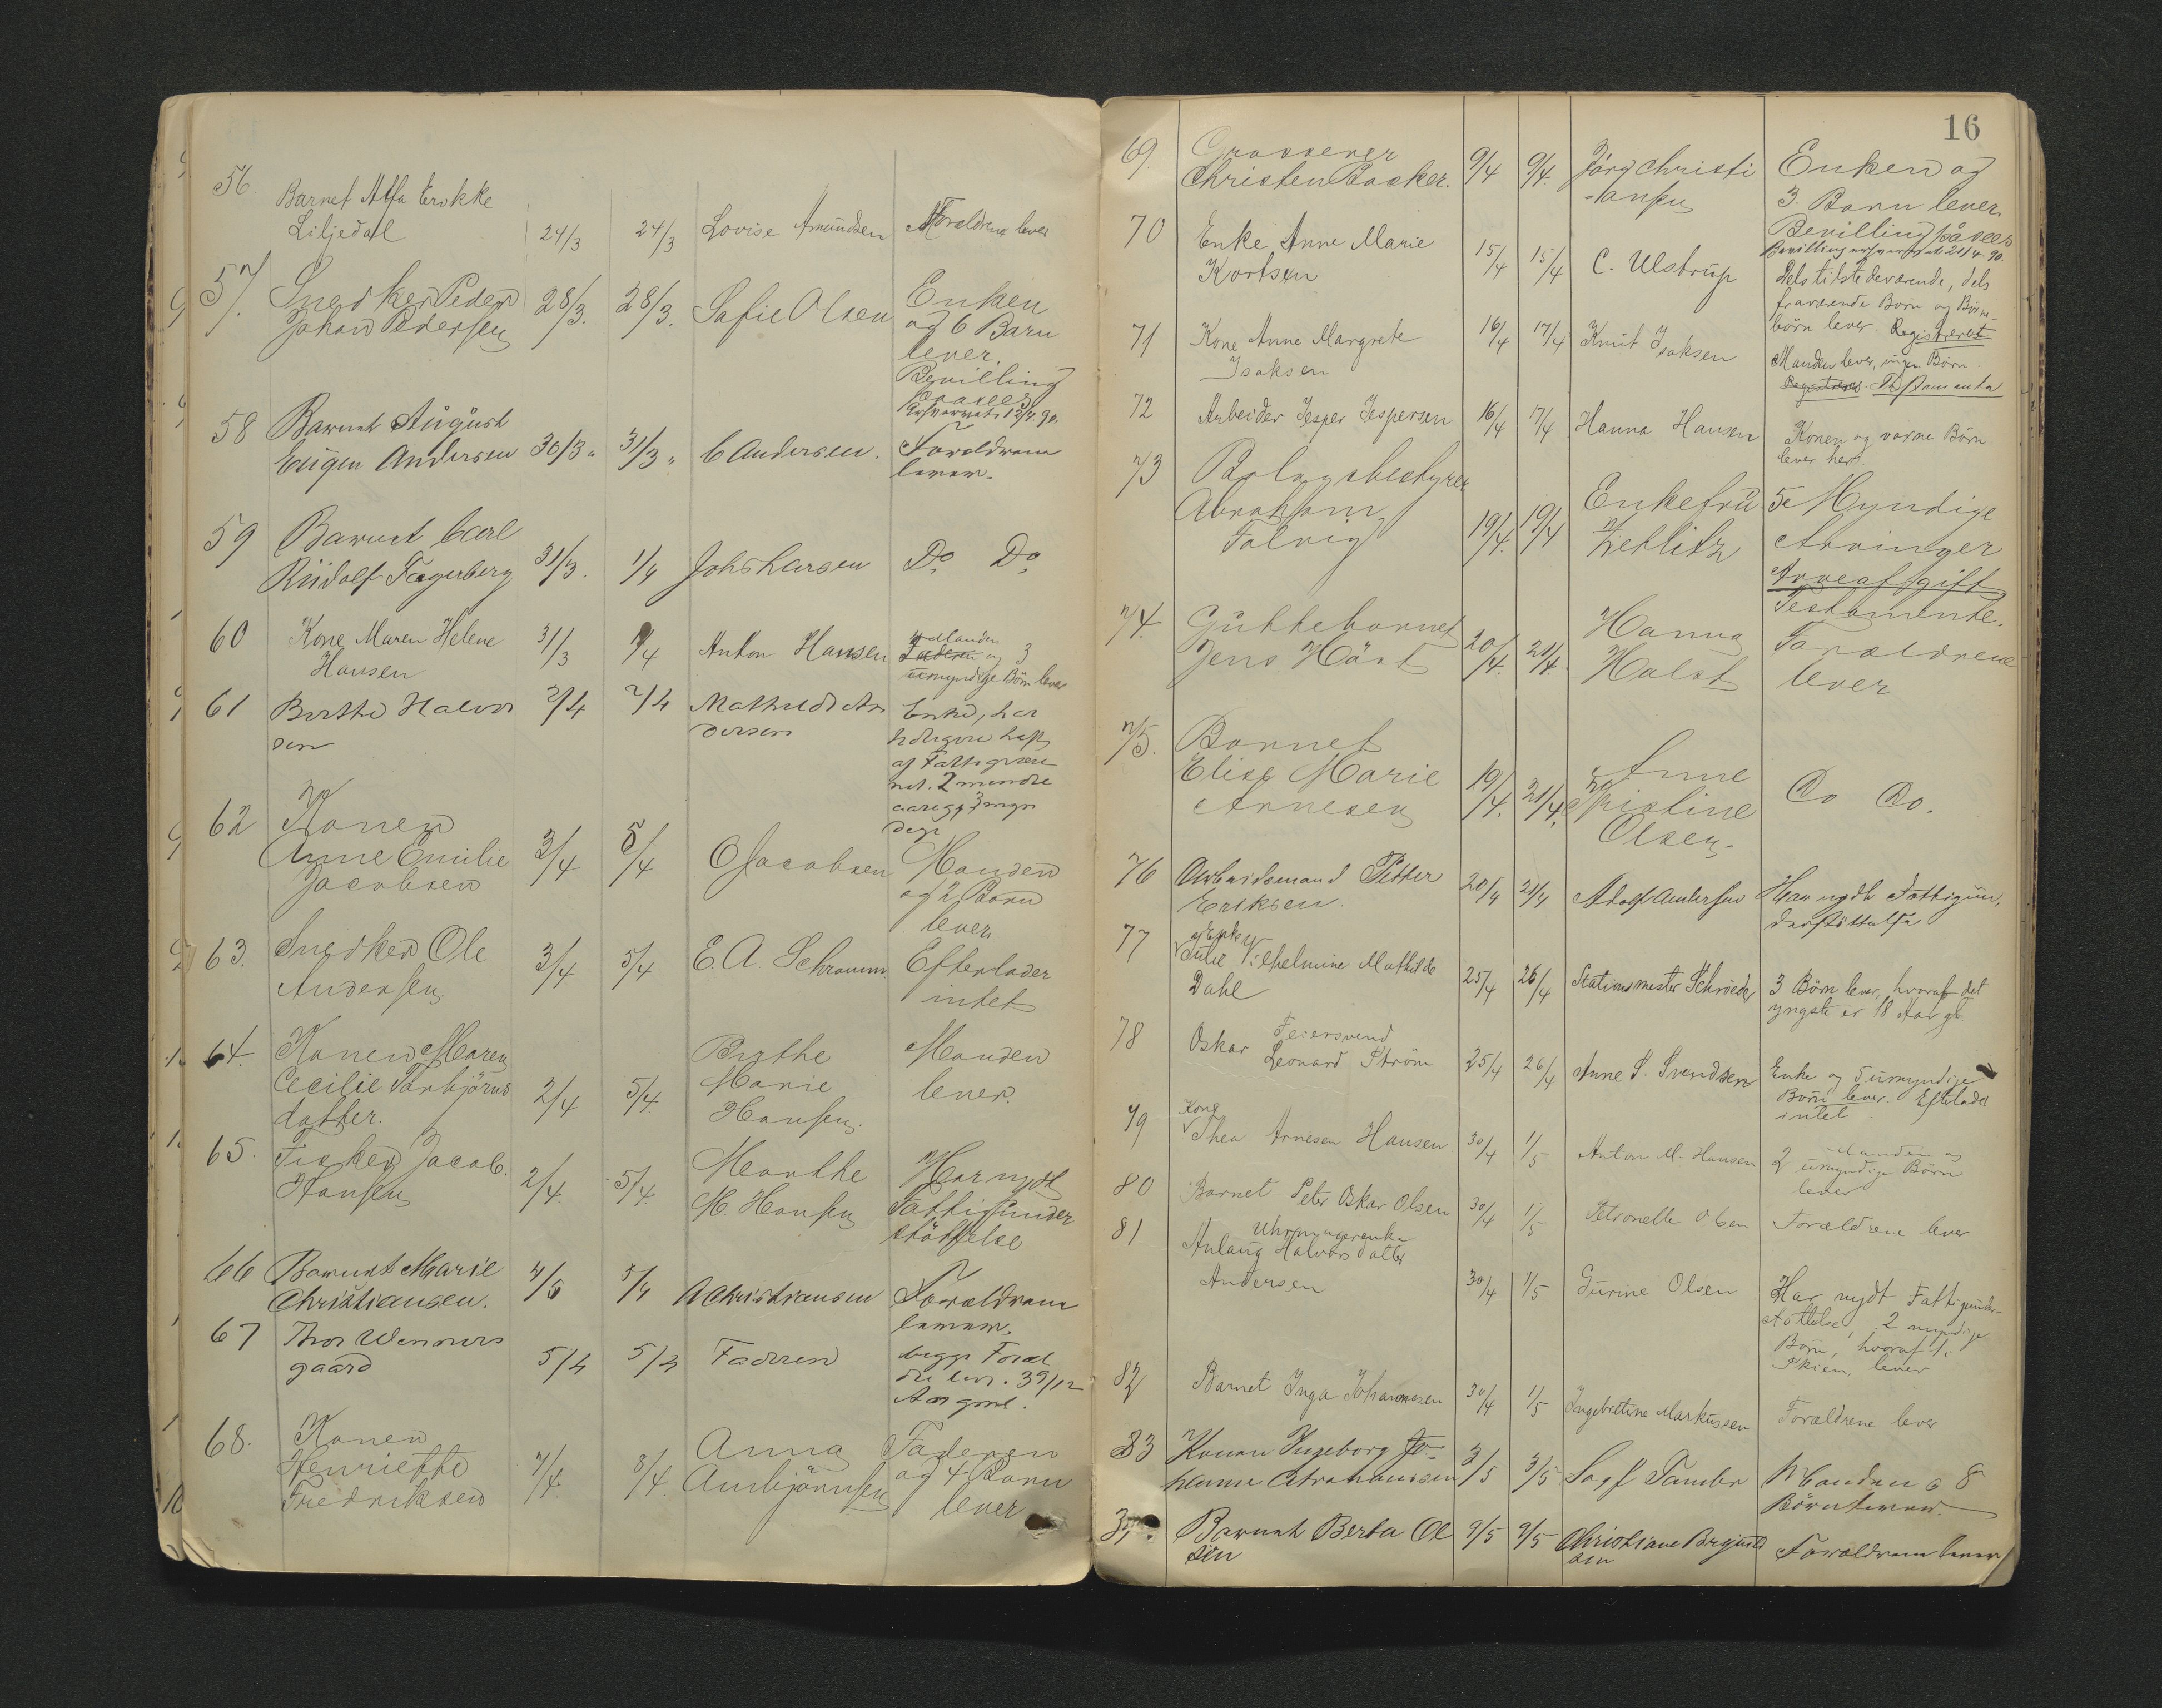 56. Barnet Alfa Erikke
Liljedal 24/3 24/3 Lovise Amundsen Forældrene lever
57. Snedker Peder
Johan Pedersen 28/3. 28/3. Safie Olsen Enken
og 6 Barn
lever.
Bevilling
paasees
Erhvervet 12/4 90.
58 Barnet August
Eugen Andersen 30/3 31/3 C Andersen. Forældrene
lever.
59 Barnet Carl
Rudolf Fagerberg 31/3. 1/4 Johs Larsen Do Do
60 Kone Maren Helene
Hansen 31/3 1/4 Anton Hansen Manden
Faderen og 3
umyndige Börn lever
61 Berthe Halvor
sen 2/4 2/4 Mathilde An
dersen Enke, har
tidligere haft
af Fattigvæse
net. 2 mindre
aarige, 3 myn
dige
62 Konen
Anne Emilie
Jacobsen 3/4 5/4 O Jacobsen Manden
og 2 Barn
lever
63. Snedker Ole
Andersen 3/4 5/4 E. A. Schramm. Efterlader
intet
64. Konen Maren
Cecilie Torbjörns
datter. 2/4 5/4. Berthe
Marie
Hansen. Manden
lever.
65. Fisker Jacob.
Hansen 2/4. 5/4. Marthe
M. Hansen Har nydt
Fattigunder
stöttelse
66 Barnet Marie
Christiansen. 4/5 5/4 A Christiansen Forældrene
lever.
67 Thor Wenners
gaard 5/4 5/4 Faderen begge Foræl
dre lev. 3 9/12
Aar gml.
68. Konen
Henriette
Fredriksen 7/4. 8/4. Anna
Ambjörnsen Faderen
og 4 Barn
lever
16
69. Grosserer
Christen Backer. 9/4 9/4. Jörg Christi
-ansen Enken og
3. Barn lever
Bevilling påsees
Bevilling erhvervet 21/4 90.
70 Enke Anne Marie
Kortsen 15/4 15/4 C. Ulstrup Dels tilstedeværende, dels
fraværende Born og Börne-
börn lever. Registreret
71 Kone Anne Margrete
Isaksen 16/4 17/4 Knut Isaksen Manden lever, ingen Börn.
Registreres. Testamente
72 Arbeider Jesper Jespersen 16/4 17/4 Hanna Hansen Konen og voxne Börn
lever her.
73 Bolagsbestyrer
Abraham
Falvig 19/4. 19/4 Enkefru
Zetlitz 5 Myndige
Arvinger
Arveafgift
Testamente.
74. Guttebarnet
Jens Häst 20/4. 21/4. Hanna
Halst Forældrene
lever
75. Barnet
Elise Marie
Arnesen 19/4. 21/4. Anne
Kristine
Olsen. Do Do.
76 Arbeidsmand Petter
Eriksen. 20/4 21/4 Adolf Andersen Har nydt Fattigun,
derstöttelse
77 Enke
Julie Vilhelmine Mathilde
Dahl 25/4 26/4 Stationsmester Schröeder 3 Börn lever, hvoraf det
yngste er 18 Aar gl.
78 Feiersvend
Oskar Leonard Ström 25/4 26/4 Anne S. Svendsen Enke og 5 umyndige
Born lever. Efterlader
intet
79 Kone
Thea Arnesen Hansen 30/4 1/5 Anton M. Hansen Manden og
2 umyndige Börn
lever
80 Barnet Peter Oskar Olsen 30/4 1/5 Petronelle Olsen Forældrene lever
81 Uhrmagerenke
Anlaug Halvorsdatter
Andersen 30/4 1/5 Gurine Olsen Har nydt Fattigunder-
støttelse, 2 myndige
Börn, hvoraf 1 i
Skien, lever
82 Barnet Inga Johannesen 30/4 1/5 Ingebretine Markussen Forældrene lever
83 Konen Ingeborg Jo-
hanne Abrahamsen 3/5 3/5 Manden o 8
Börn lever.
Barnet Berta Ol
sen 9/5 9/5 Christiane Forældrene lever